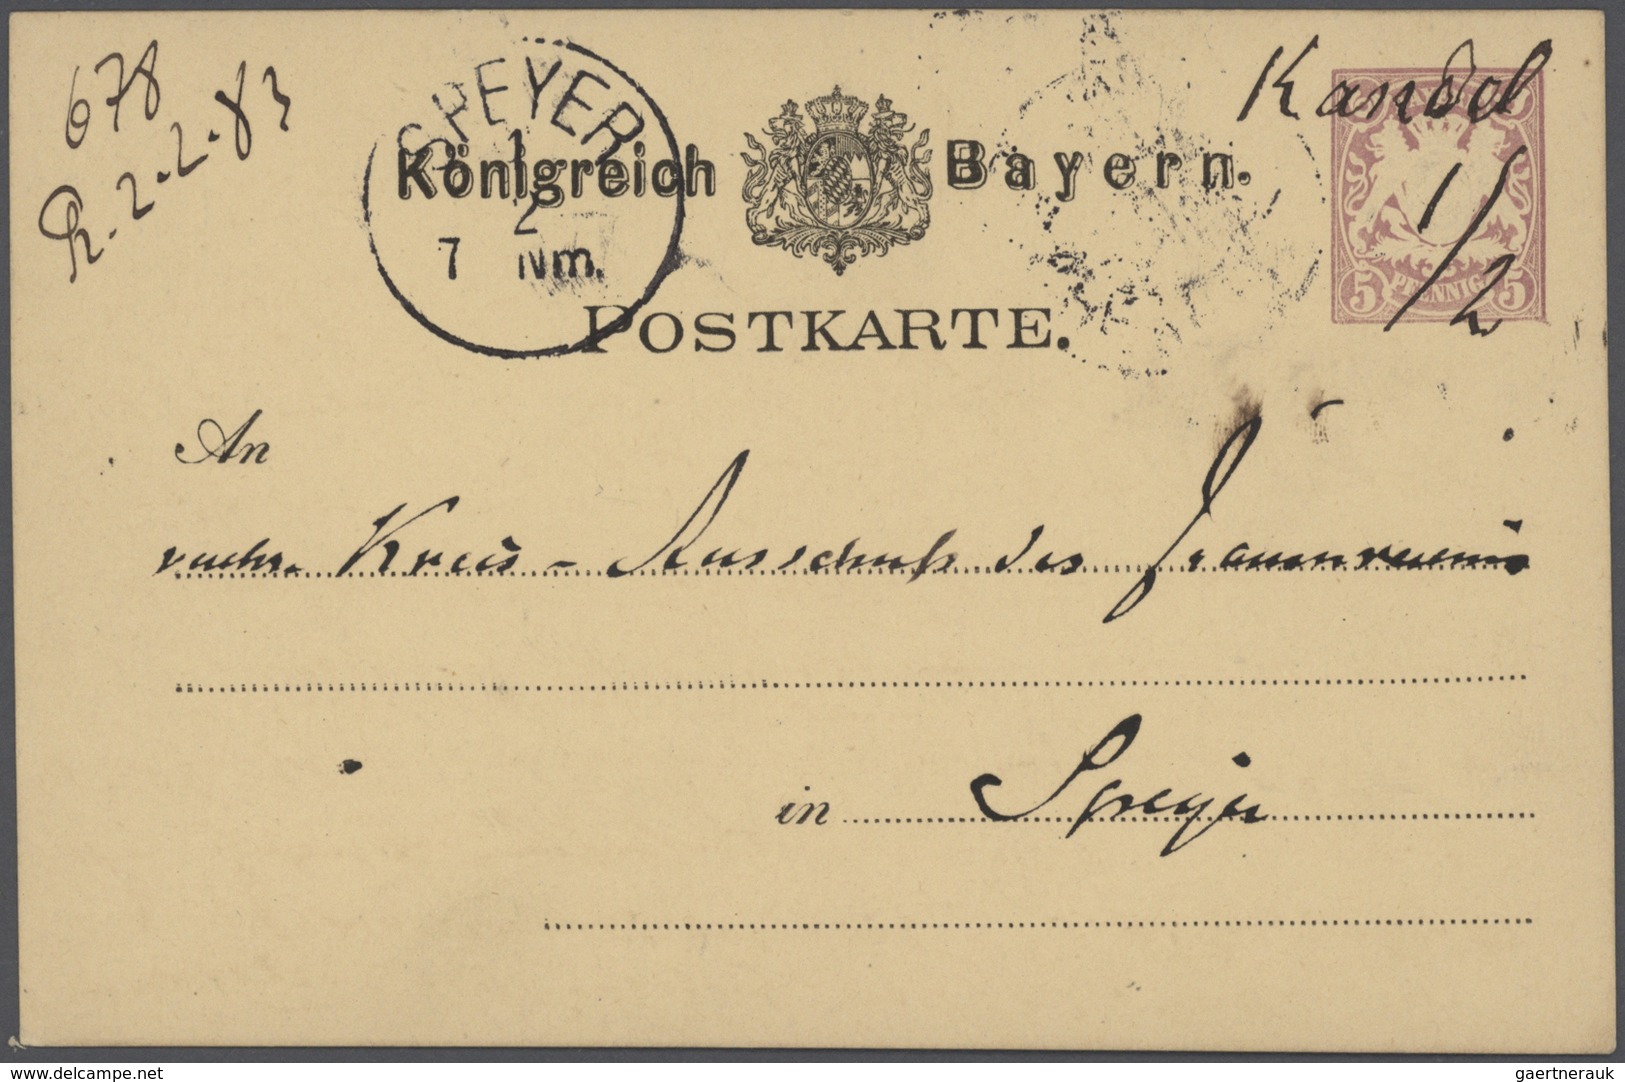 678
R. 2. 2. 83
SPEYER
1
2
7 Nm.
Königreich Bayern.
Kandel
1/2
BAYERN
5 PFENNIG 5
POSTKARTE.
An
Kreis-Ausschuß des Frauenvereins
in Speyer
delcampe.net
gaertnerauk